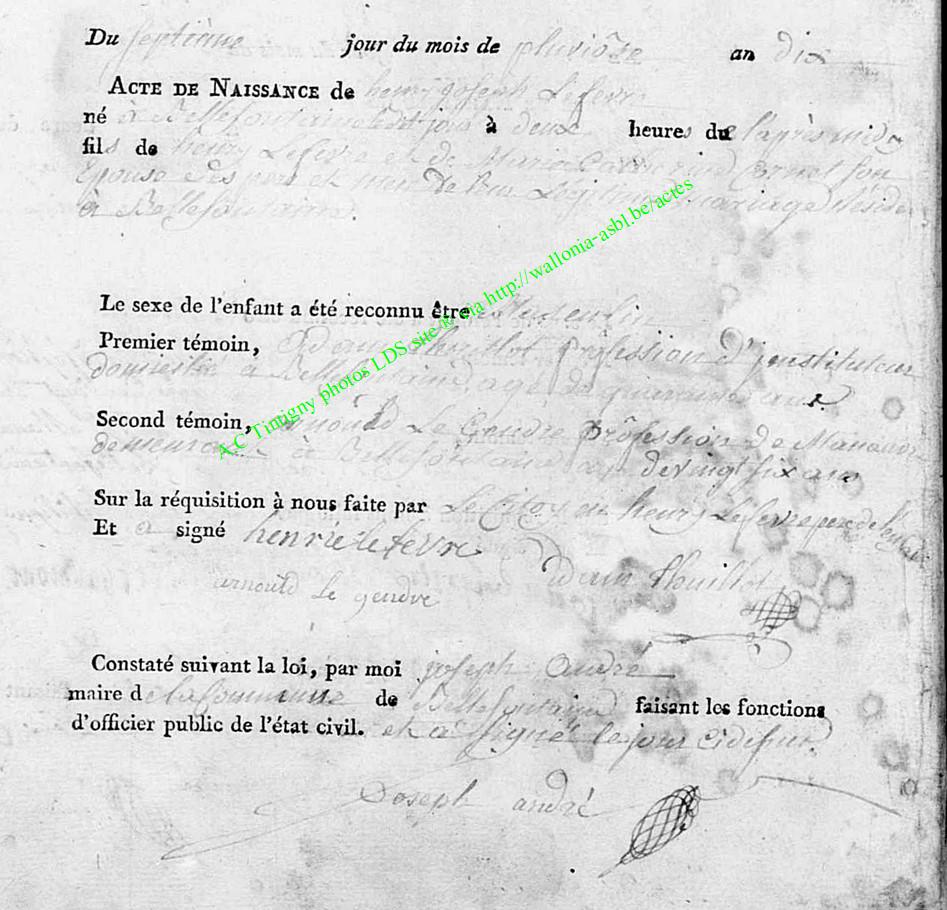 Du septiême jour du mois de pluviôse an dix
ACTE DE NAISSANCE de henry joseph Lefevre
né a Bellefontaine dit jour à deux heures du l'après midy
fils de henry Lefevre et de Marie Cornet son
Epouse ses pere et mere de leur Legitime mariage Résider
à Bellefontaine.
Le sexe de l'enfant a été reconnu être
Premier témoin, Adam thouillot profession d'jnstituteur
domicilié à Bellefontaine agé de quarante ans.
Second témoin, arnould Le Gendre profession de Manœuv
demeurant à Bellefontaine agé de vingt six ans
Sur la réquisition à nous faite par Le Citoyen henry Lefevre pere de l'enfant
Et a signé henrie lefevre Adam thouillot
arnould Le gendre
Constaté suivant la loi, par moi joseph andré
maire d e la Commune de Bellefontaine faisant les fonctions
d'officier public de l'état civil. et a signé le jour cidessus.
Joseph andré
A.C Tintigny photos LDS site ® via http://wallonia-asbl.be/actes